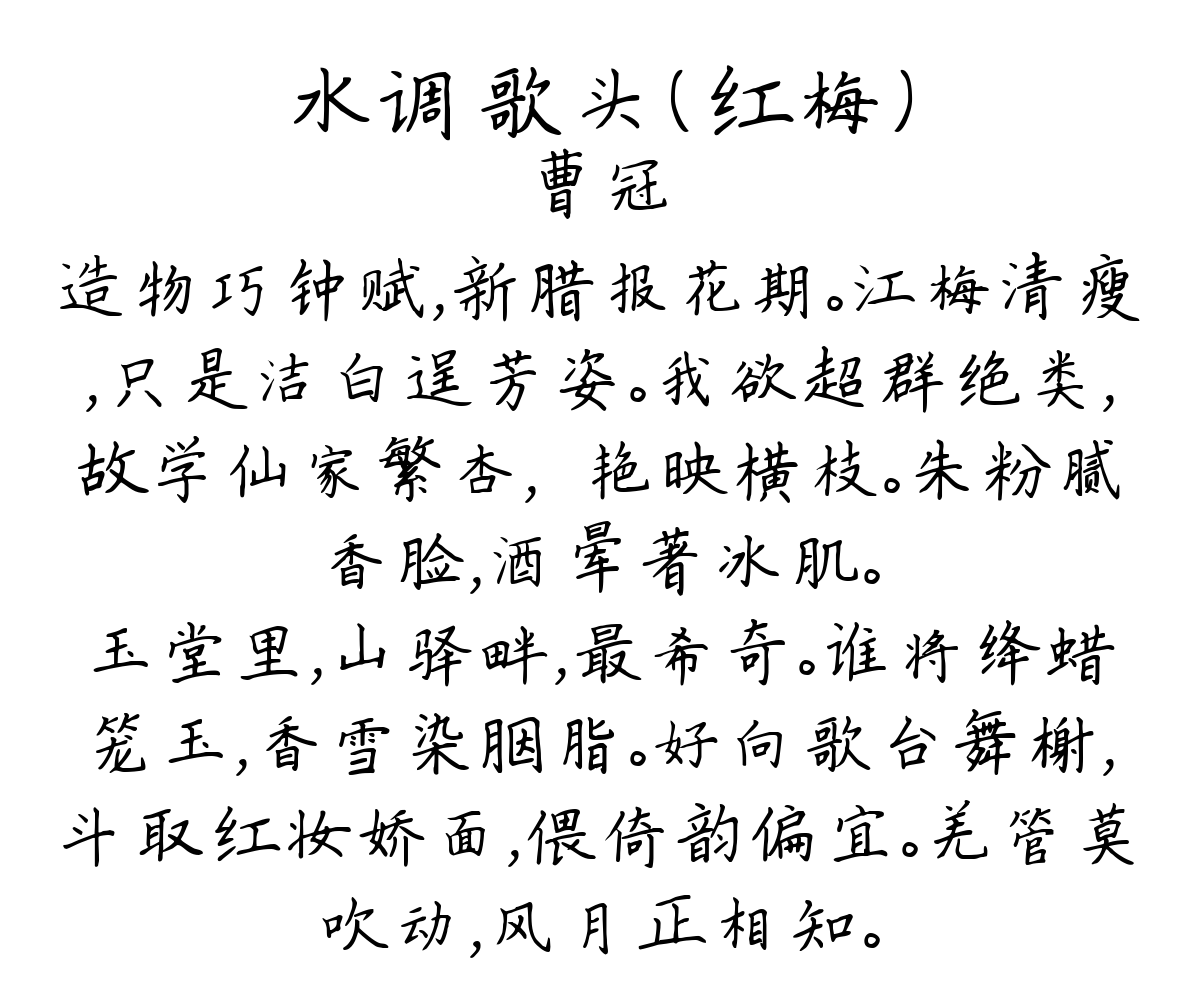 水调歌头(红梅)
曹冠
造物巧钟赋,新腊报花期。江梅清瘦
,只是洁白逞芳姿。我欲超群绝类,
故学仙家繁杏，艳映横枝。朱粉腻
香脸,酒晕著冰肌。
玉堂里,山驿畔,最希奇。谁将绛蜡
笼玉,香雪染胭脂。好向歌台舞榭,
斗取红妆娇面,偎倚韵偏宜。羌管莫
吹动,风月正相知。